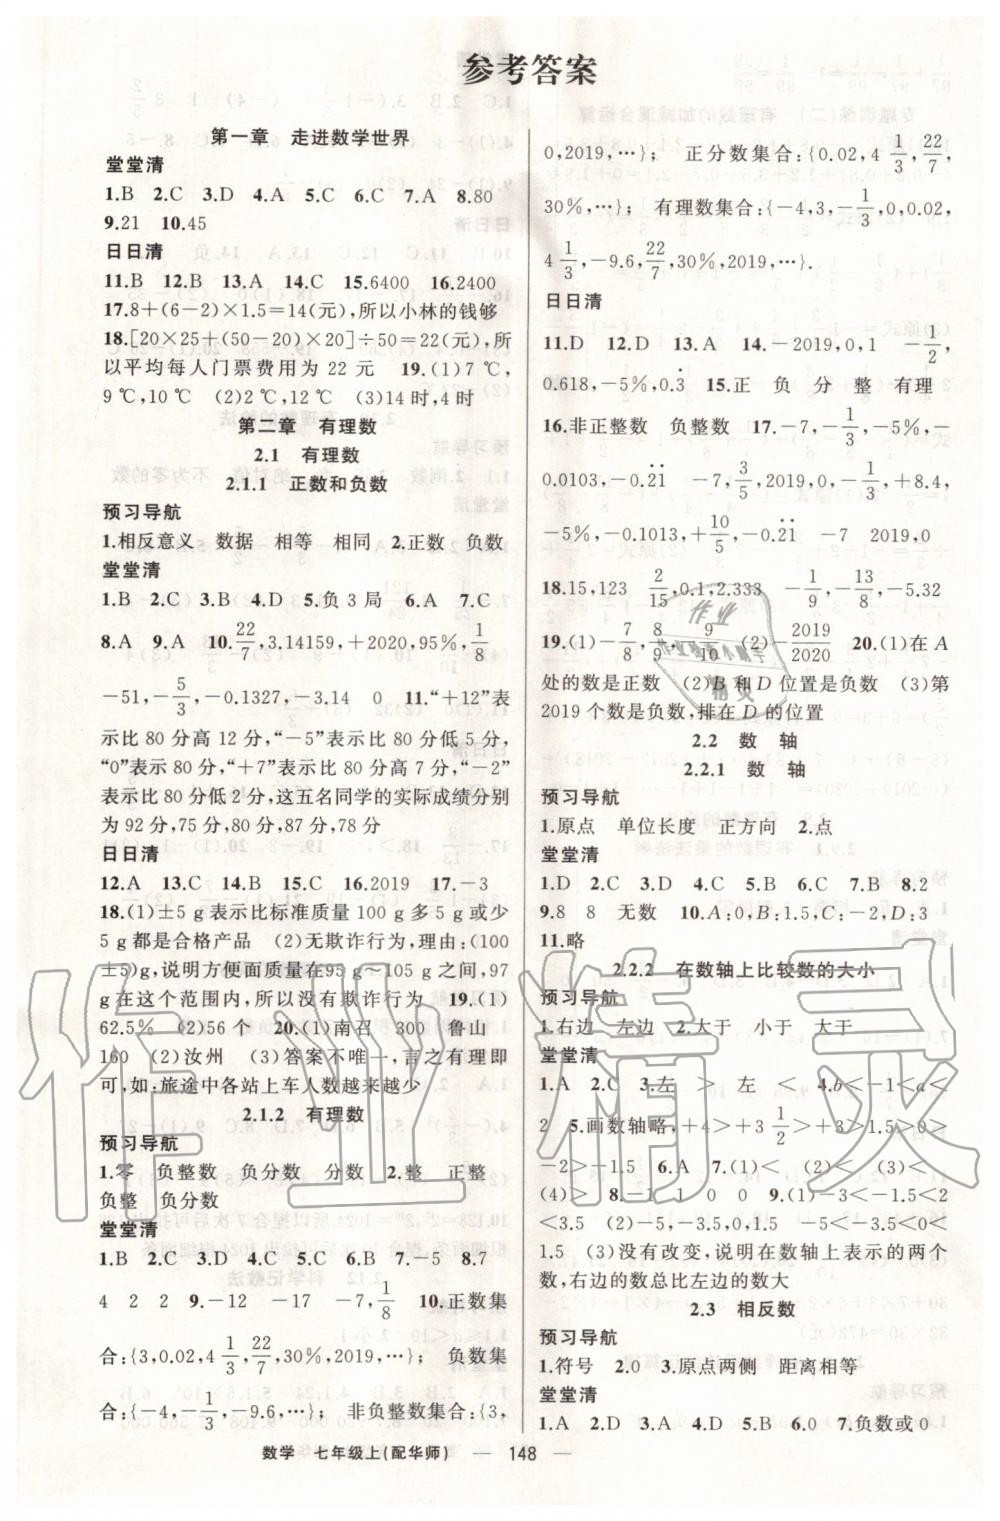 参考答案
第一章　走进数学世界
堂堂清
1.B　2.C　3.D　4.A　5.C　6.C　7.A　8.80
9.21　10.45
日日清
11.B　12.C　13.A　14.C　15.6400　16.2400
17.8+(6-2)×1.5=14(元),所以小林的钱够
18.[20×25+(50-20)×20]÷50=22(元),所
以平均每人门票费用为 22 元　19.(1)7 ℃,
9 ℃,10 ℃　(2)12 ℃　(3)14 时,4 时
第二章　有理数
2.1　有理数
2.1.1　正数和负数
预习导航
1.相反意义　数据　相等　相同　2.正数　负数
堂堂清
1.B　2.C　3.B　4.D　5.负 3 局　6.A　7.C
8.A　9.A　10.22/7,3.14159,+2020,95%,1/8
-51,-5/3,-0.1327,-3.14　0　11.“+12”表
示比 80 分高 12 分,“-5”表示比 80 分低 5 分,
“0”表示 80 分,“+7”表示比 80 分高 7 分,“-2”
表示比 80 分低 2 分,这五名同学的实际成绩分别
为 92 分,75 分,80 分,87 分,78 分
日日清
12.A　13.C　14.B　15.C　16.2019　17.-3
18.(1)±5 g 表示比标准质量 100 g 多 5 g 或少
5 g 都是合格产品　(2)无欺诈行为,理由:(100
±5)g,说明方便面质量在95 g~105 g之间,97
g 在这个范围内,所以没有欺诈行为　19.(1)
62.5%　(2)56 个　20.(1)南召　300　鲁山
160　(2)汝州　(3)答案不唯一,言之有理即
可,如:旅途中各站上车人数越来越少
2.1.2　有理数
预习导航
1.零　负整数　负分数　分数　2.整　正整
负整　负分数
堂堂清
1.B　2.C　3.D　4.B　5.C　6.B　7.-5　8.7
4　2　2　9.-12　-17　-7,1/8　10.正数集
合:{3,0.02,4 1/3,22/7,30%,2019,…};　负数集
合:{-4,-1/3,-9.6,…};　非负整数集合:{3,
0,2019,…};　正分数集合:{0.02,4 1/3,22/7,
30%,…};　有理数集合:{-4,3,-1/3,0,0.02,
4 1/3,-9.6,22/7,30%,2019,…}.
日日清
11.D　12.D　13.A　14.-2019,0,1　-1/2,
0.618,-5%,0.3̇　15.正　负　分　整　有理
16.非正整数　负整数　17.-7,-1/3,-5%,-
0.0103,-0.2̇1̇　-7,3/5,2019,0,-1/7,+8.4,
-5%,-0.1013,+10/5,-0.2̇1̇　-7　2019,0
18.15,123　2/15,0.1,2.333　-1/9,-8/13,-5.32
19.(1)-7/8　8/9　-9/10　(2)-2019/2020　20.(1)在 A
处的数是正数　(2)B 和 D 位置是负数　(3)第
2019 个数是负数,排在 D 的位置
2.2　数　轴
2.2.1　数　轴
预习导航
1.原点　单位长度　正方向　2.点
堂堂清
1.D　2.C　3.D　4.C　5.B　6.C　7.B　8.2
9.8　8　无数　10.A:0,B:1.5,C:-2,D:3
11.略
2.2.2　在数轴上比较数的大小
预习导航
1.右边　左边　2.大于　小于　大于
堂堂清
1.A　2.C　3.左　>　左　<　4.b<-1<a<
2　5.画数轴略,+4>+3 1/2>+3>1.5>0>
-2>-1.5　6.A　7.(1)<　(2)>　(3)<
(4)>　8.-1　1　0　0　9.(1)-3<-1.5<2
<3.5　(2)0　-5,-3.5,0,1.5　-5<-3.5<0<
1.5　(3)没有改变,说明在数轴上表示的两个
数,右边的数总比左边的数大
2.3　相反数
预习导航
1.符号　2.0　3.原点两侧　距离相等
堂堂清
1.A　2.D　3.C　4.D　5.B　6.0　7.负数或 0
数学　七年级上(配华师)　—　148　—
作业精灵